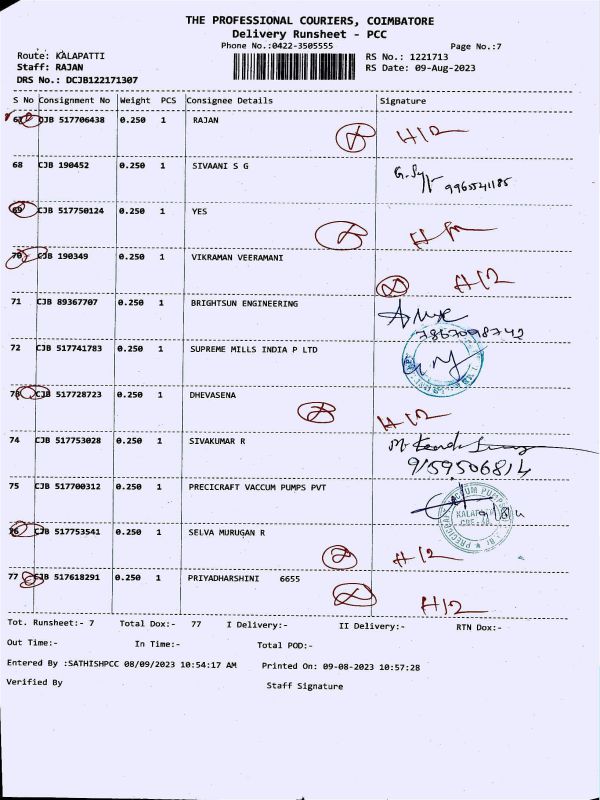 THE PROFESSIONAL COURIERS, COIMBATORE
Delivery Runsheet - PCC
Phone No.:0422-3505555 Page No.:7
Route: KALAPATTI RS No.: 1221713
Staff: RAJAN RS Date: 09-Aug-2023
DRS No.: DCJB122171307
S No Consignment No Weight PCS Consignee Details Signature
67 CJB 517706438 0.250 1 RAJAN
68 CJB 190452 0.250 1 SIVAANI S G
9965541185
69 CJB 517750124 0.250 1 YES
70 CJB 190349 0.250 1 VIKRAMAN VEERAMANI
71 CJB 89367707 0.250 1 BRIGHTSUN ENGINEERING
7867098742
72 CJB 517741783 0.250 1 SUPREME MILLS INDIA P LTD
73 CJB 517728723 0.250 1 DHEVASENA
74 CJB 517753028 0.250 1 SIVAKUMAR R
75 CJB 517700312 0.250 1 PRECICRAFT VACCUM PUMPS PVT
76 CJB 517753541 0.250 1 SELVA MURUGAN R
77 CJB 517618291 0.250 1 PRIYADHARSHINI 6655
Tot. Runsheet:- 7 Total Dox:- 77 I Delivery:- II Delivery:- RTN Dox:-
Out Time:- In Time:- Total POD:-
Entered By :SATHISHPCC 08/09/2023 10:54:17 AM Printed On: 09-08-2023 10:57:28
Verified By Staff Signature